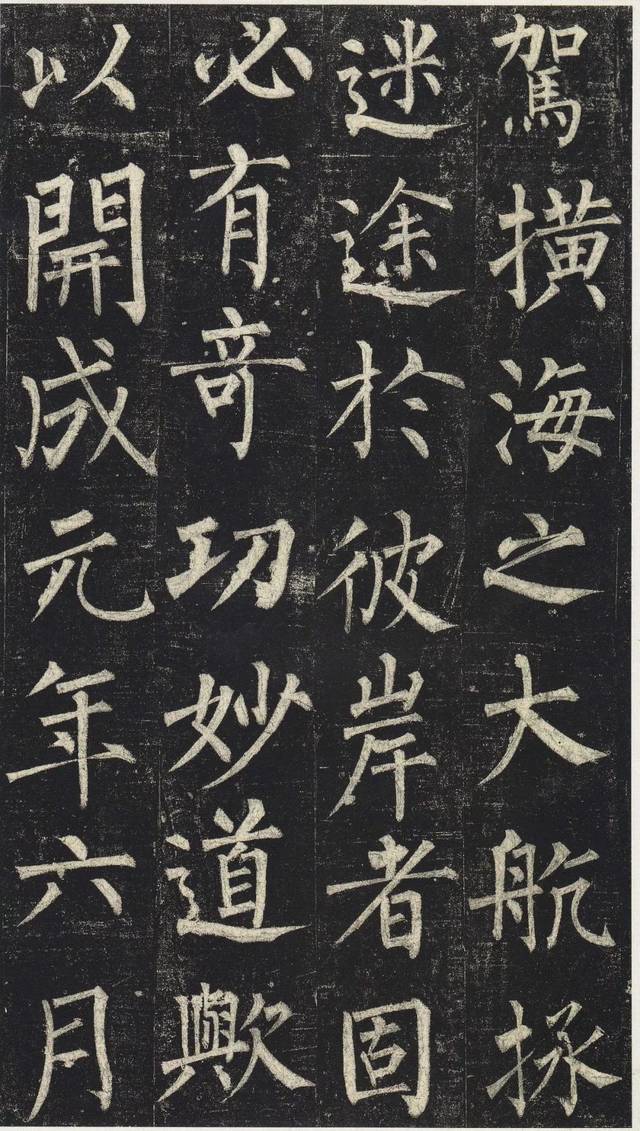 駕橫海之大航拯
迷途於彼岸者固
必有奇功妙道歟
以開成元年六月